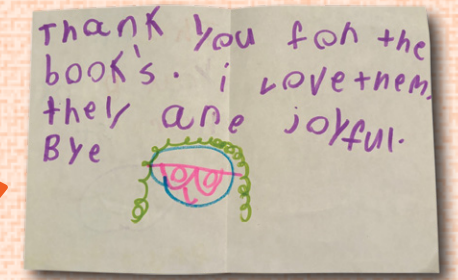 Thank you for the
book's. i love them,
they are joyful.
Bye